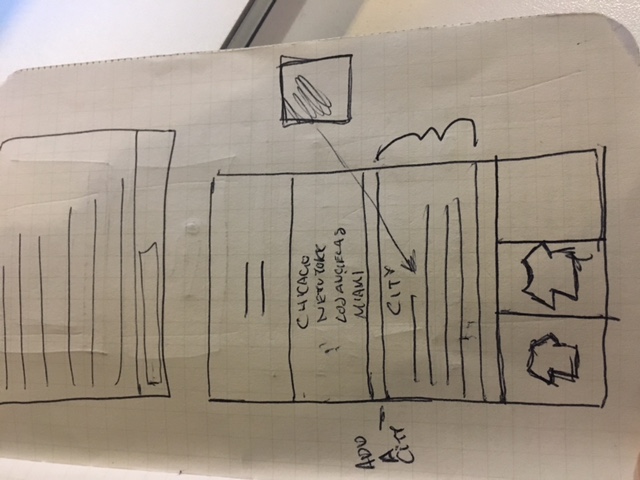 CHICAGO
NEW YORK
LOS ANGELAS
MIAMI
ADD
A
CITY
CITY